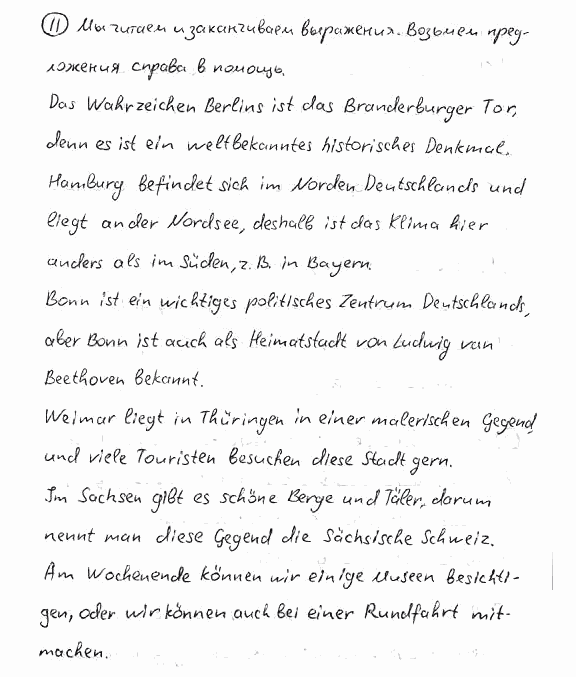 11 Мы читаем и заканчиваем выражения. Возьмем пред-
ложения справа в помощь.
Das Wahrzeichen Berlins ist das Branderburger Tor,
denn es ist ein weltbekanntes historisches Denkmal.
Hamburg befindet sich im Norden Deutschlands und
liegt an der Nordsee, deshalb ist das Klima hier
anders als im Süden, z. B. in Bayern.
Bonn ist ein wichtiges politisches Zentrum Deutschlands,
aber Bonn ist auch als Heimatstadt von Ludwig van
Beethoven bekannt.
Weimar liegt in Thüringen in einer malerischen Gegend
und viele Touristen besuchen diese Stadt gern.
Im Sachsen gibt es schöne Berge und Täler, darum
nennt man diese Gegend die Sächsische Schweiz.
Am Wochenende können wir einige Museen besichti-
gen, oder wir können auch bei einer Rundfahrt mit-
machen.